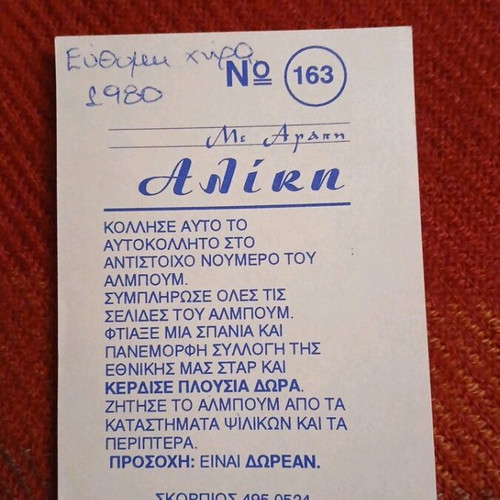 Εύθυμη χήρα
1980
Nº 163
Με Αγάπη
Αλίκη
ΚΟΛΛΗΣΕ ΑΥΤΟ ΤΟ
ΑΥΤΟΚΟΛΛΗΤΟ ΣΤΟ
ΑΝΤΙΣΤΟΙΧΟ ΝΟΥΜΕΡΟ ΤΟΥ
ΑΛΜΠΟΥΜ.
ΣΥΜΠΛΗΡΩΣΕ ΟΛΕΣ ΤΙΣ
ΣΕΛΙΔΕΣ ΤΟΥ ΑΛΜΠΟΥΜ.
ΦΤΙΑΞΕ ΜΙΑ ΣΠΑΝΙΑ ΚΑΙ
ΠΑΝΕΜΟΡΦΗ ΣΥΛΛΟΓΗ ΤΗΣ
ΕΘΝΙΚΗΣ ΜΑΣ ΣΤΑΡ ΚΑΙ
ΚΕΡΔΙΣΕ ΠΛΟΥΣΙΑ ΔΩΡΑ.
ΖΗΤΗΣΕ ΤΟ ΑΛΜΠΟΥΜ ΑΠΟ ΤΑ
ΚΑΤΑΣΤΗΜΑΤΑ ΨΙΛΙΚΩΝ ΚΑΙ ΤΑ
ΠΕΡΙΠΤΕΡΑ.
ΠΡΟΣΟΧΗ: ΕΙΝΑΙ ΔΩΡΕΑΝ.
ΣΚΟΡΠΙΟΣ 495 0524